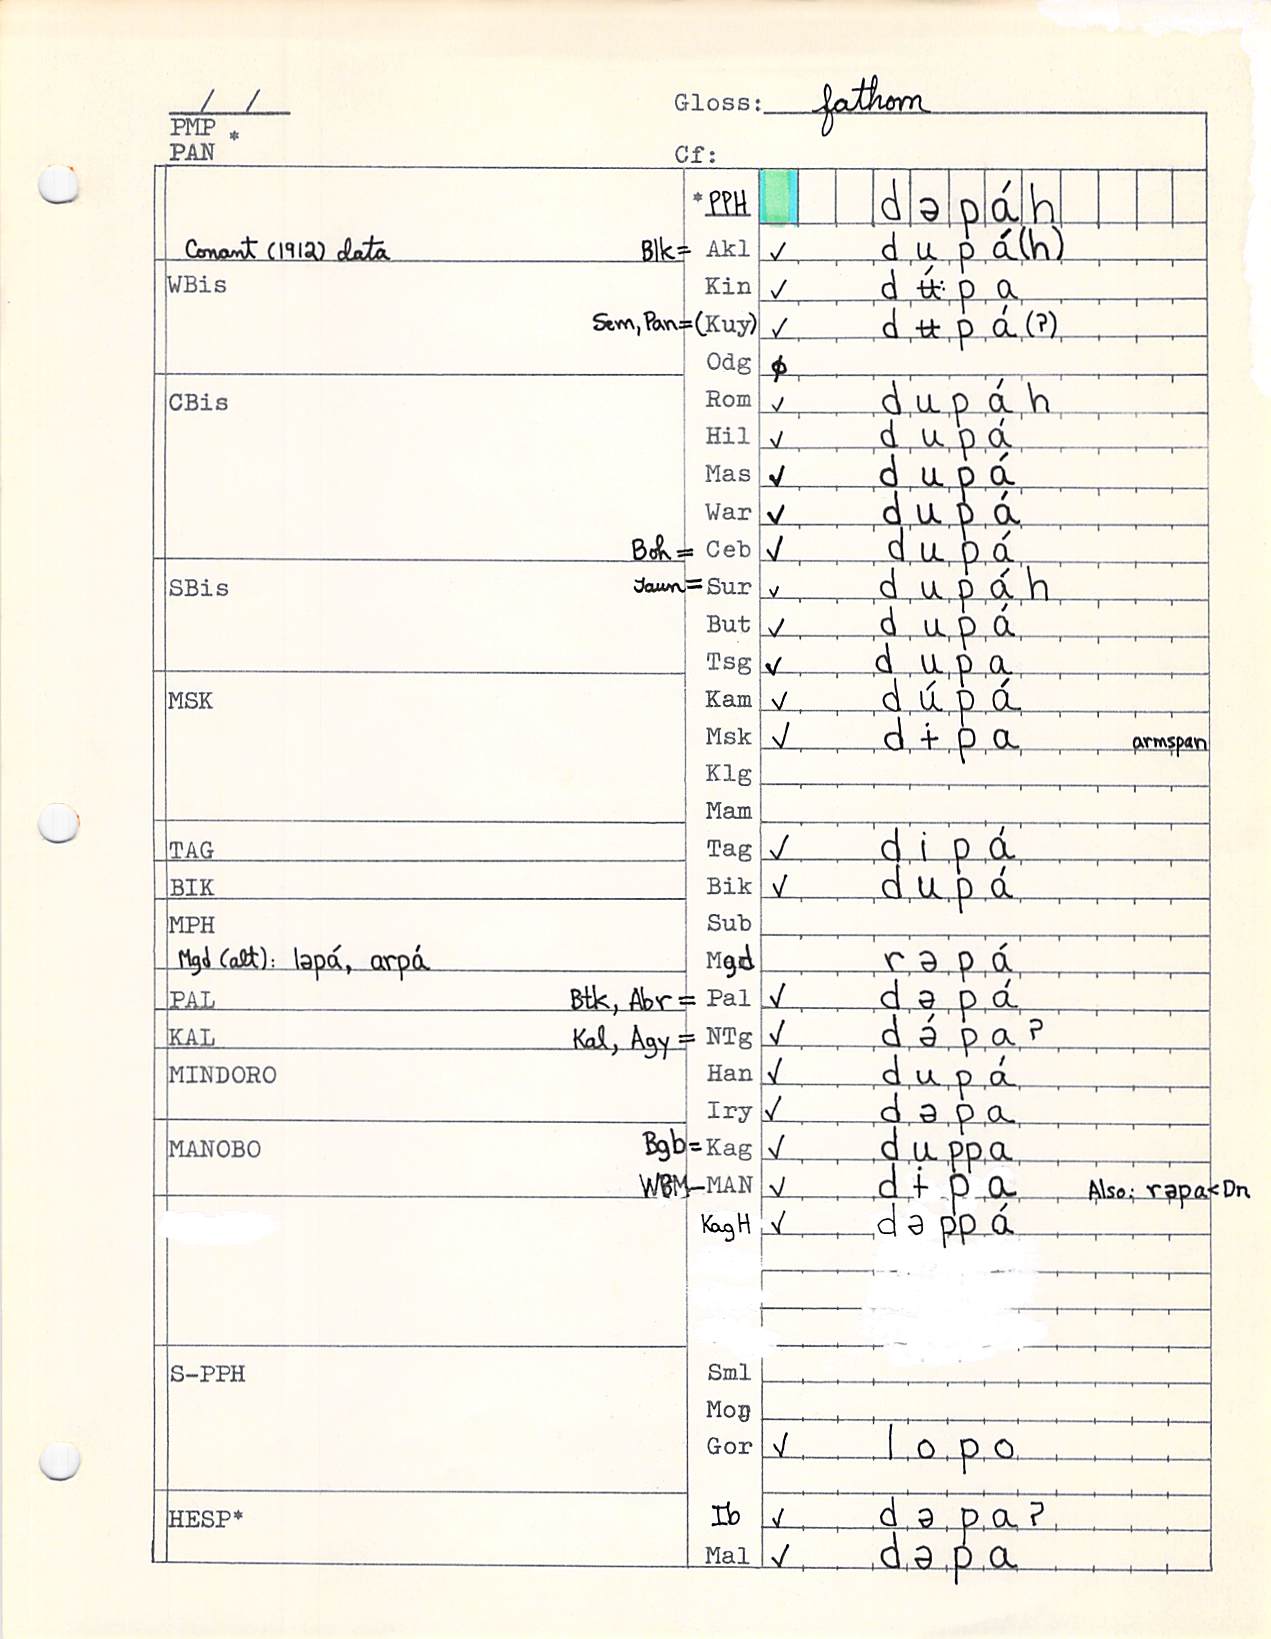 / /
Gloss: fathom
PMP *
PAN
Cf:
*PPH dəpáh
Conant (1912) data Blk= Akl ✓ dupá(h)
WBis Kin ✓ dʉ́:pa
Sem, Pan=(Kuy) ✓ dʉpá(?)
Odg ∅
CBis Rom ✓ dupáh
Hil ✓ dupá
Mas ✓ dupá
War ✓ dupá
Boh = Ceb ✓ dupá
SBis Jaun=Sur ✓ dupáh
But ✓ dupá
Tsg ✓ dupa
MSK Kam ✓ dúpá
Msk ✓ dɨpa armspan
Klg
Mam
TAG Tag ✓ dipá
BIK Bik ✓ dupá
MPH Sub
Mgd (alt): ləpá, arpá Mgd rəpá
PAL Btk, Abr = Pal ✓ dəpá
KAL Kal, Agy = NTg ✓ də́paʔ
MINDORO Han ✓ dupá
Iry ✓ dəpa
MANOBO Bgb=Kag ✓ duppa
WBM-MAN ✓ dɨpa Also: rəpa<Dn
KagH ✓ dəppá
S-PPH Sml
Mog
Gor ✓ lopo
HESP* Ib ✓ dəpaʔ
Mal ✓ dəpa